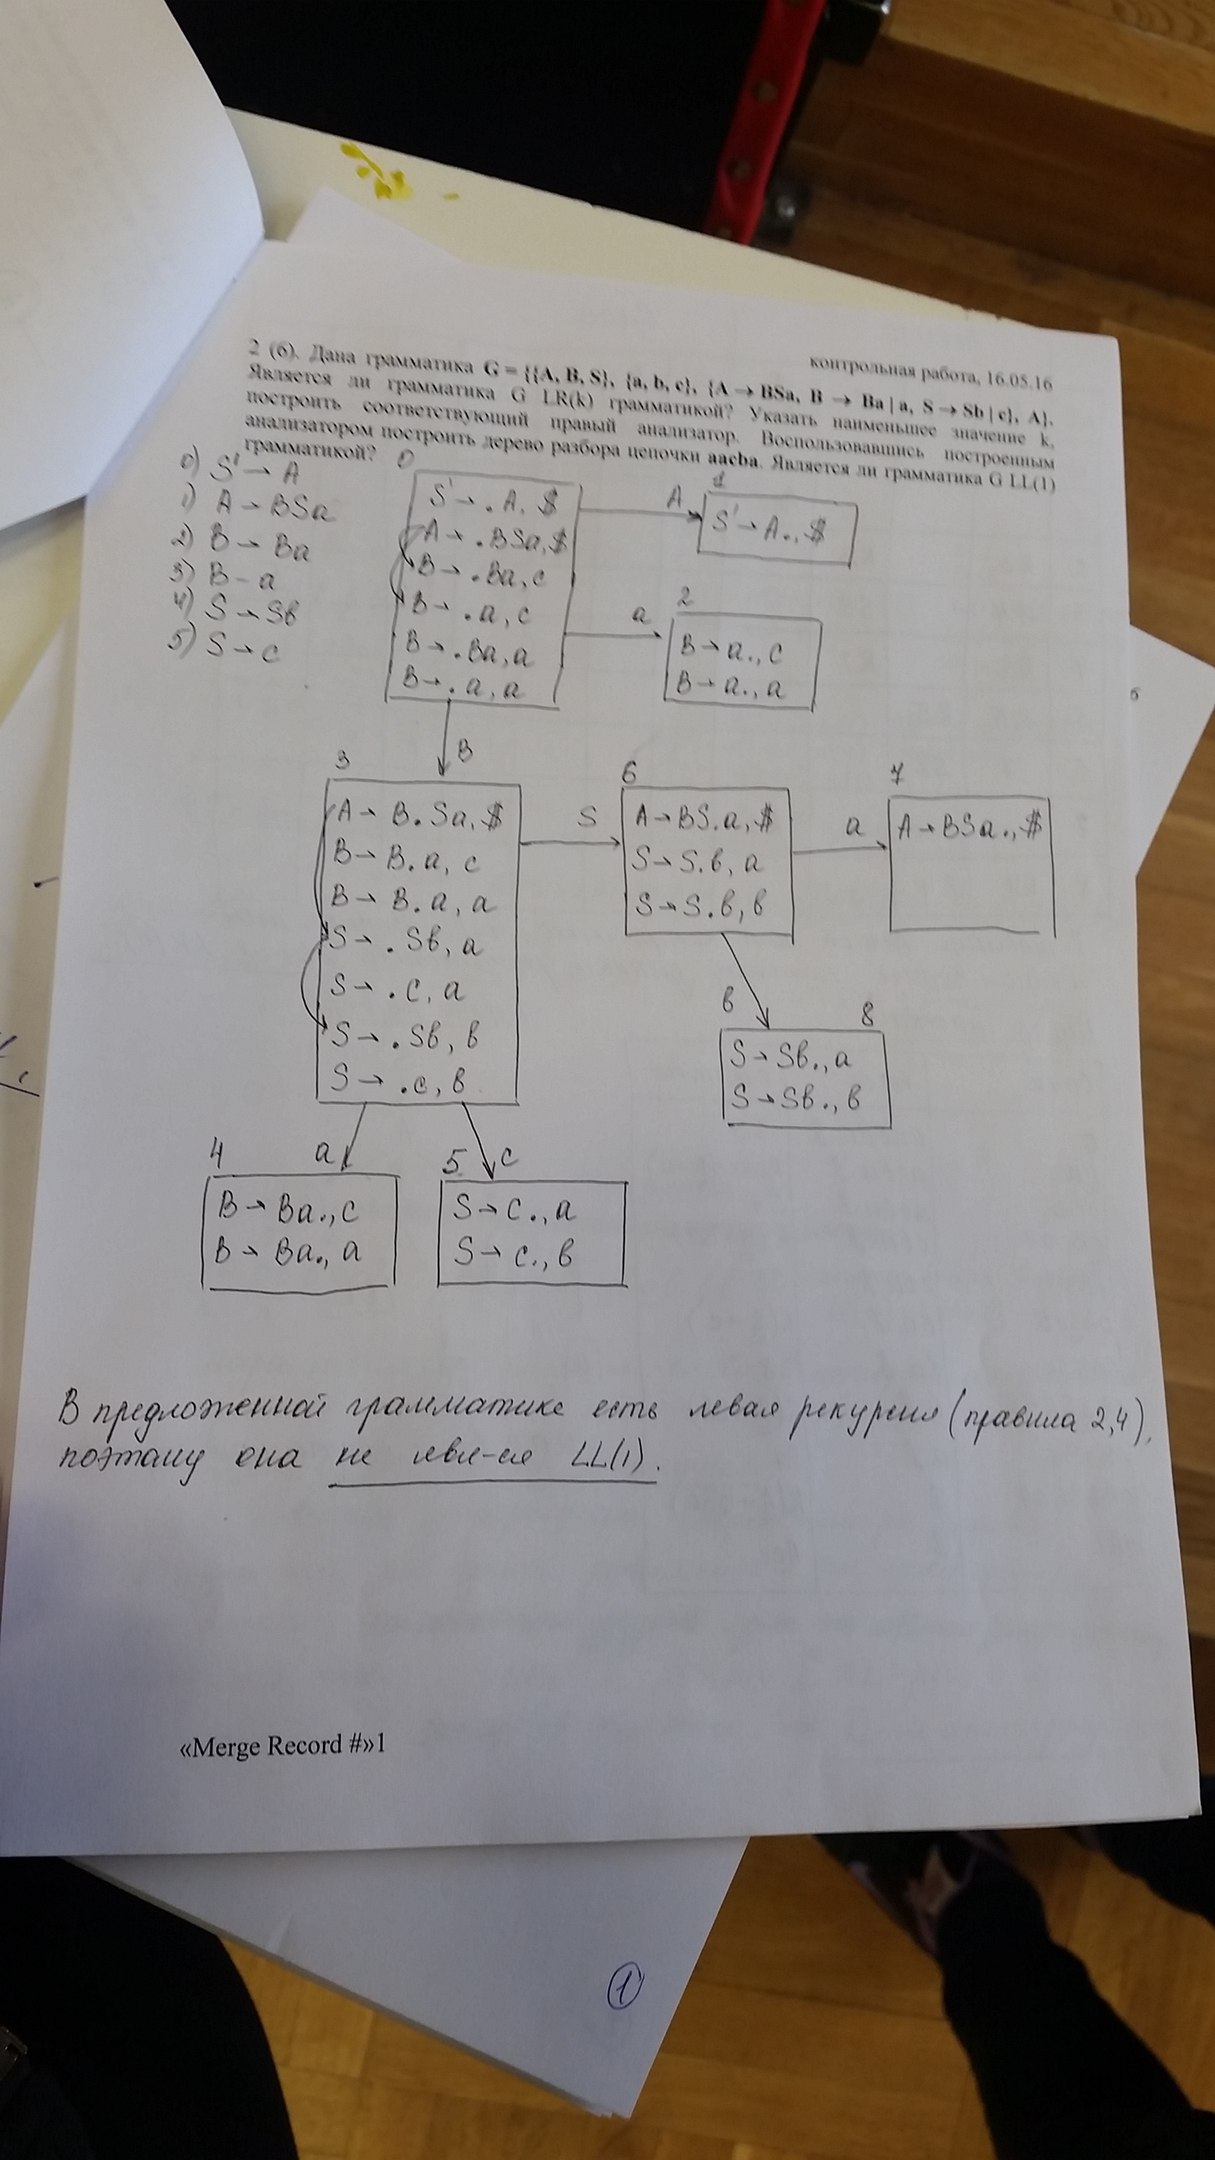 контрольная работа, 16.05.16
2 (6). Дана грамматика G = {{A, B, S}, {a, b, c}, {A → BSa, B → Ba | a, S → Sb | c}, A}.
Является ли грамматика G LR(k) грамматикой? Указать наименьшее значение k,
построить соответствующий правый анализатор. Воспользовавшись построенным
анализатором построить дерево разбора цепочки aacba. Является ли грамматика G LL(1)
грамматикой?
0) S' → A
1) A → BSa
2) B → Ba
3) B – a
4) S → Sb
5) S → c
0
S' → .A, $
A → .BSa, $
B → .Ba, c
B → .a, c
B → .Ba, a
B → .a, a
A
1
S' → A., $
a
2
B → a., c
B → a., a
B
3
A → B.Sa, $
B → B.a, c
B → B.a, a
S → .Sb, a
S → .c, a
S → .Sb, b
S → .c, b
S
6
A → BS.a, $
S → S.b, a
S → S.b, b
a
7
A → BSa., $
b
8
S → Sb., a
S → Sb., b
4
a
B → Ba., c
B → Ba., a
5
c
S → c., a
S → c., b
В предложенной грамматике есть левая рекурсия (правила 2,4),
поэтому она не явл-ся LL(1).
«Merge Record #»1
1